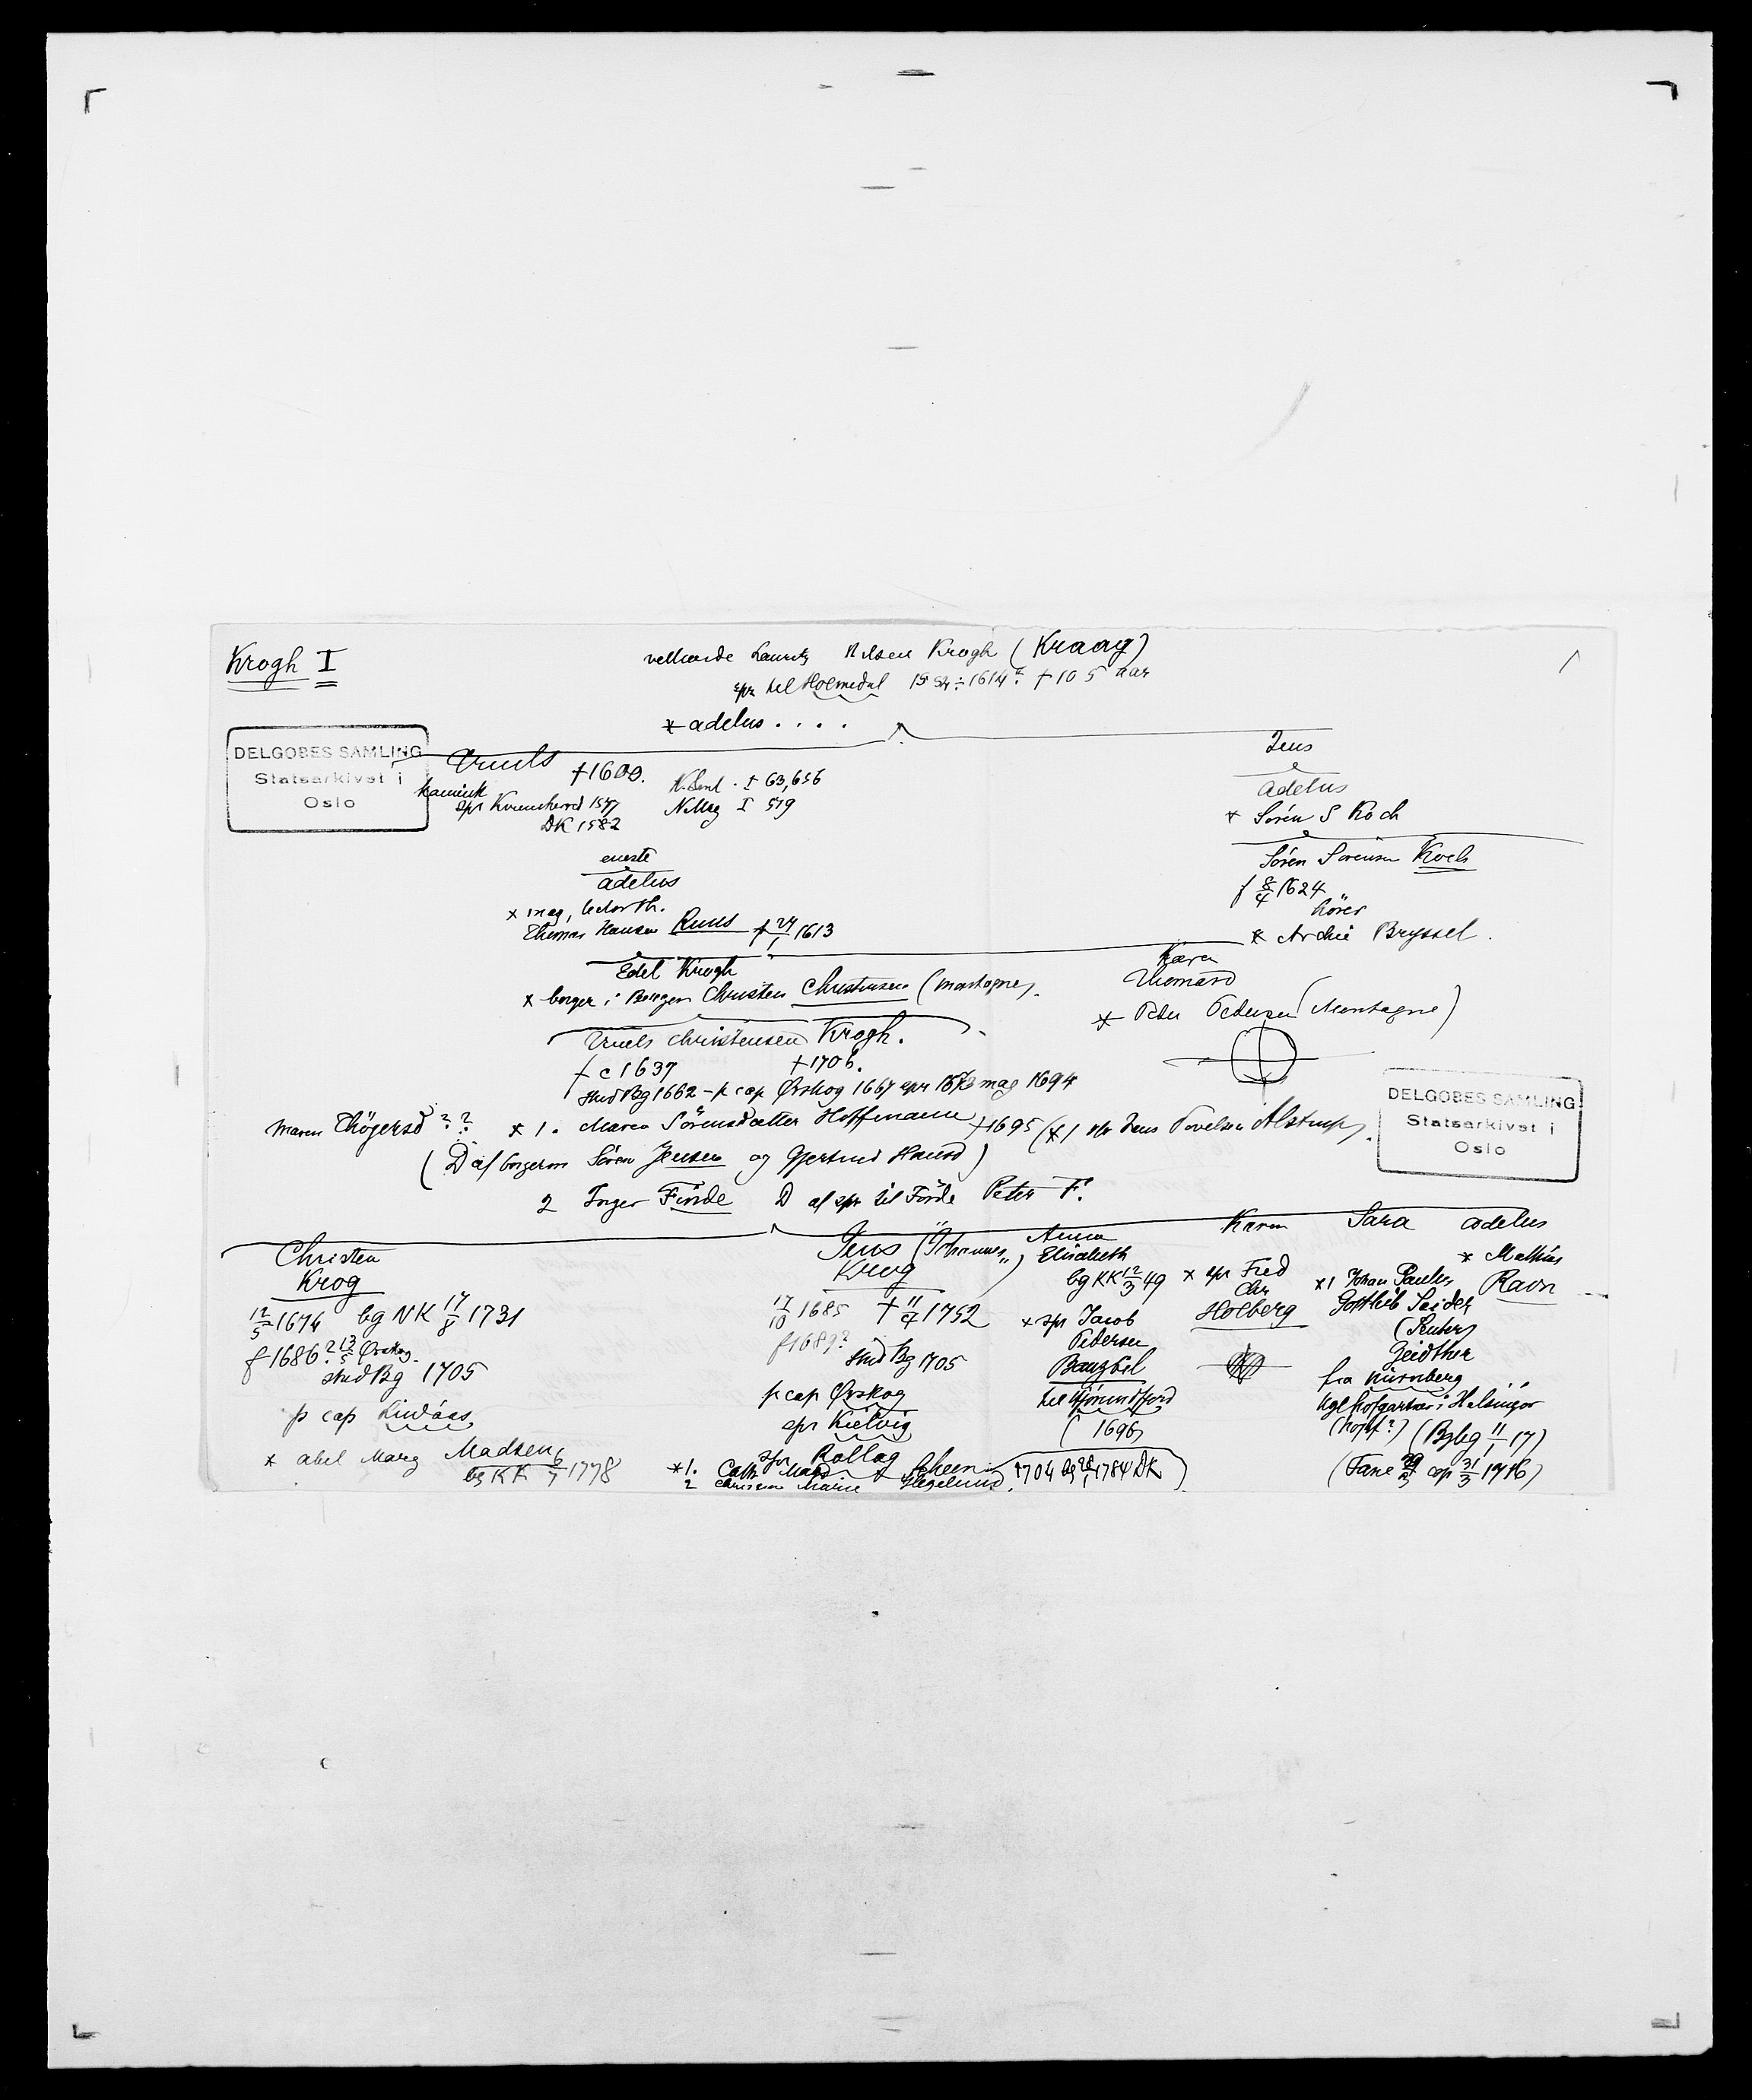 Krogh I
Lauritz Nilsen Krogh (Kraag)
spr til Holmedal 1614? † 105 aar
* adelus . . . .
DELGOBES SAMLING
Statsarkivet i
Oslo
Truels †1609.
spr Kvinnherred 1577
DK 1582
N Mag I 519
Jens
Adelus
* Søren S Koch
Søren Sørensen Koch
f 8/4 1624
hører
* Bryssel.
eneste
adelus
* mag, lector th.
Thomas Hansen Ruus † 24/1 1613
Edel Krogh
* borger i Bergen Christen Christensen (Montagne).
Karen
Thomasd
* Peder Pedersen (Montagne)
Truels Christensen Krogh.
f c 1637 †1706.
stud Bg 1662 - p cap Ørskog 1667 spr mag 1694
Maren Thögersd ?? * 1. Maren Sörensdatter Hoffmann †1695 (* 1 Jens Povelsen Alstrup).
(D af borgeren Søren Jensen og Gjertrud Hansd)
2 Inger Finde D af spr til Förde Peter F.
DELGOBES SAMLING
Statsarkivet i
Oslo
Christen
Krog
12/5 1674 bg NK 17/8 1731
f 1686? 13/5 Ørskog
stud Bg 1705
p cap Lindaas
* Abel Marg Madsen
bg KK 6/7 1778
Jens (Johannes")
Krog
17/10 1685 † 11/4 1752
f 1689?
stud Bg 1705
p cap Ørskog
spr Kielvig
spr Rollag
*1. Cath Magd. Scheen
2 Marie Hegelund.
Anna
Elisabeth
bg KK 12/3 49
* spr Jacob
Pedersen
Bangbøl
til Hjörundfjord
(1696)
1704 bg 1784 DK)
Karen
* spr Fred
Chr
Holberg
Sara
*1 Johan Paulus
Gottlieb Seider
Geidther
fra Nürnberg
kgl hofgartner i Helsingør
(Bgbg 11/1 17)
(Fane cop 31/3 1716)
adelus
* Mathias
Ravn